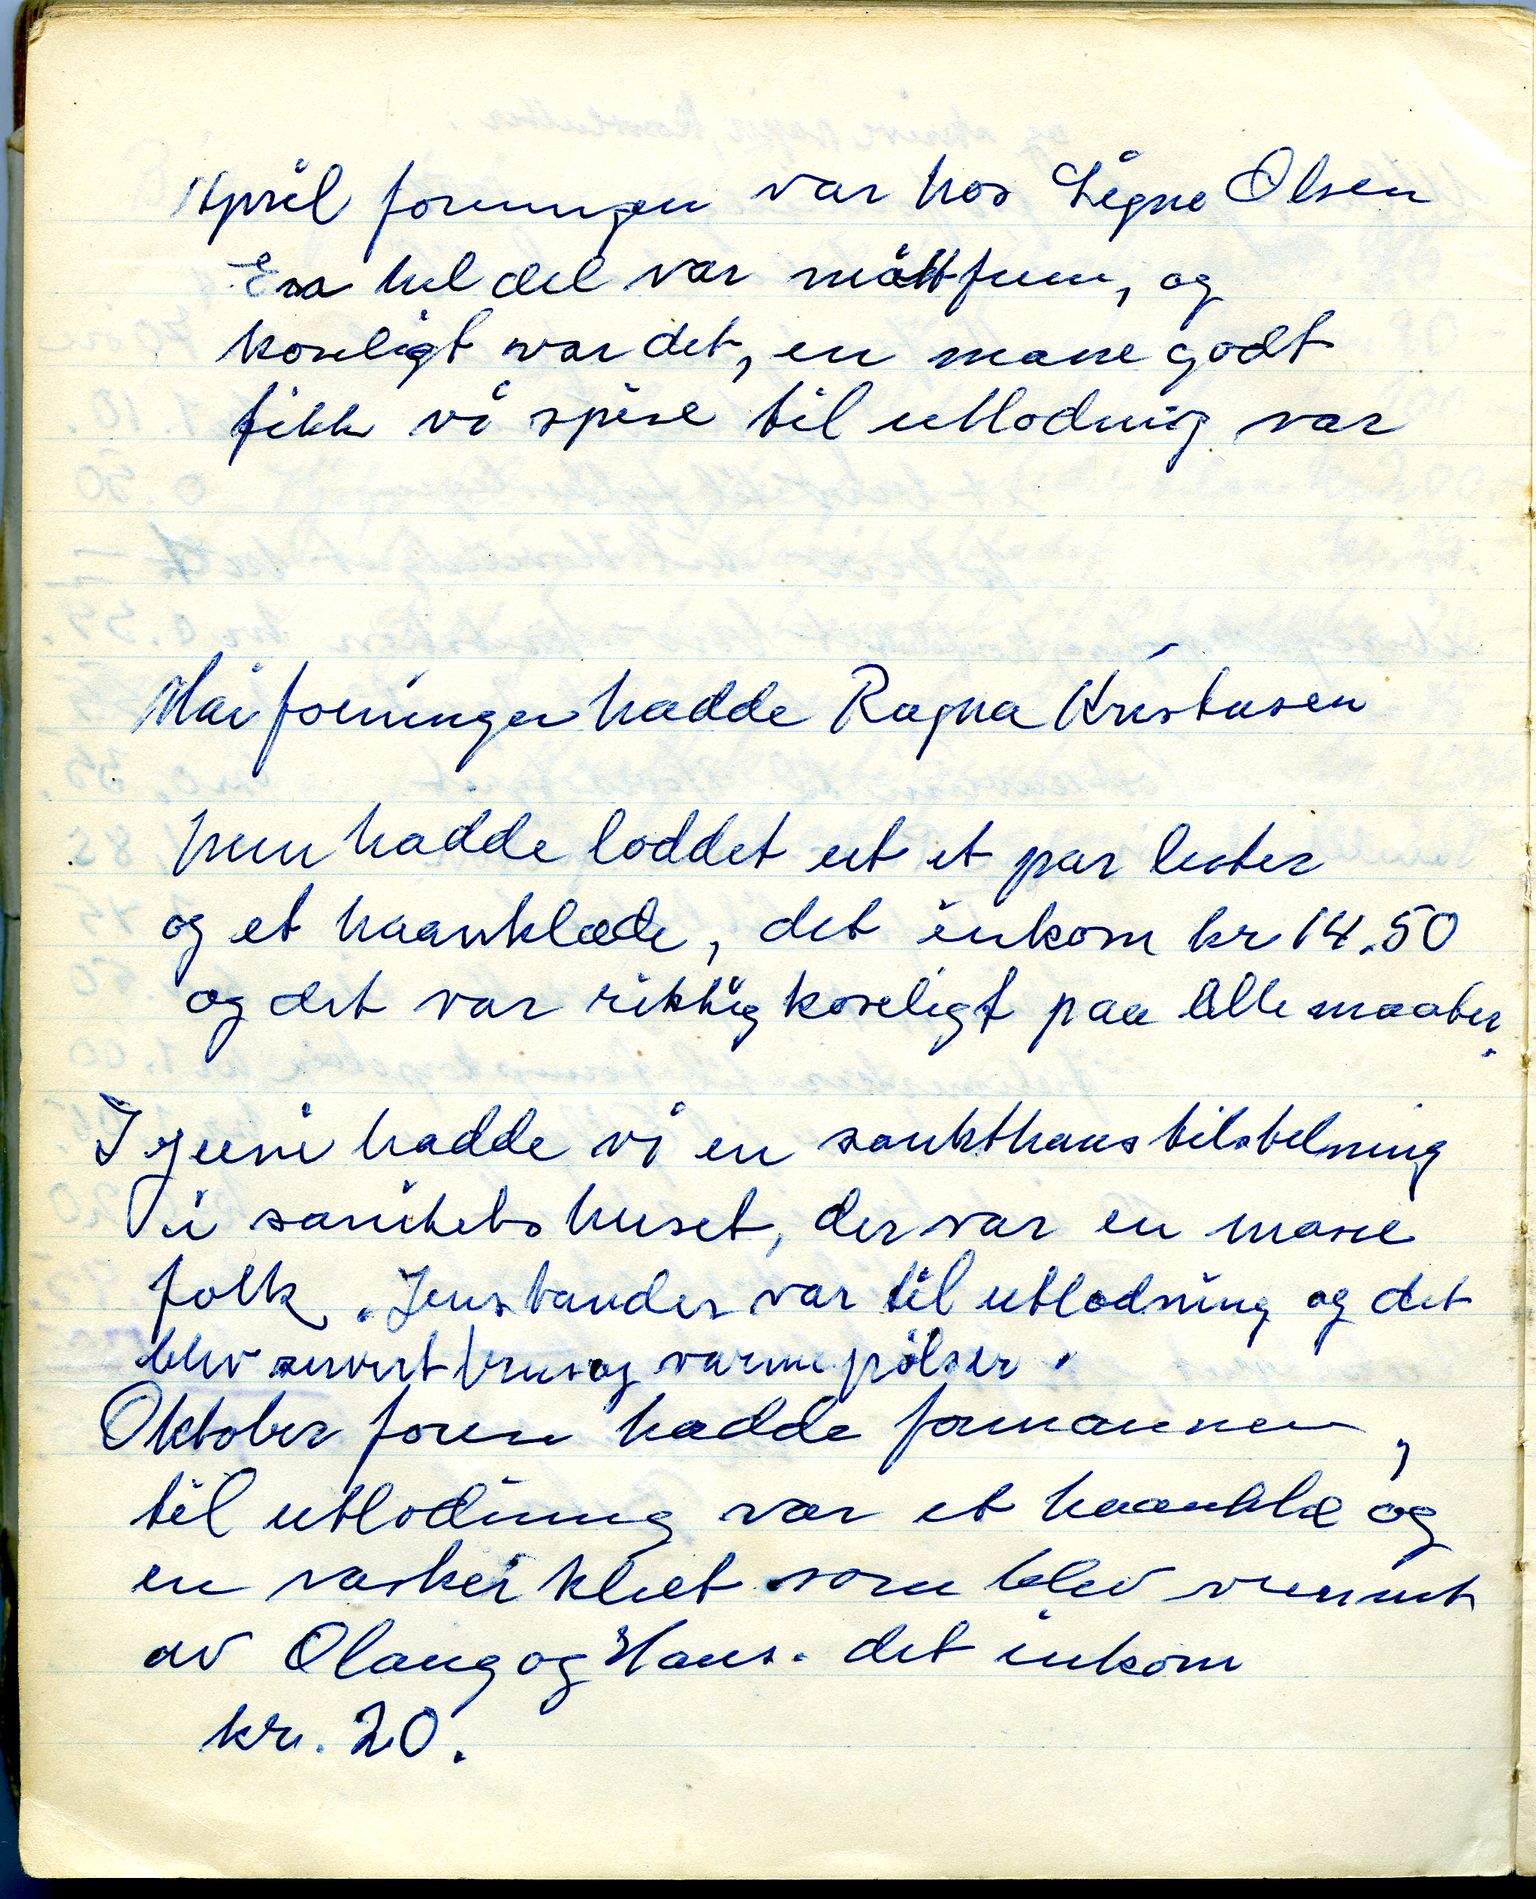 April foreningen var hos Signe Olsen
En hel del var møtt frem, og
koseligt var det, en masse godt
fikk vi spise til utlodning var
Mai foreningen hadde Ragna Kristensen
hun hadde loddet ut et par lester
og et haanklæde, det inkom kr 14.50
og det var riktig koseligt paa alle maater.
I juni hadde vi en sankthans tilstelning
i sanitets huset, der var en masse
folk. var til utlodning og det
blev servert brus og varme pølser.
Oktober foren hadde formannen,
til utlodning var et haanklæ og
en vaskeklut som blev vunnet
av Olaug og Hans. det inkom
kr. 20.